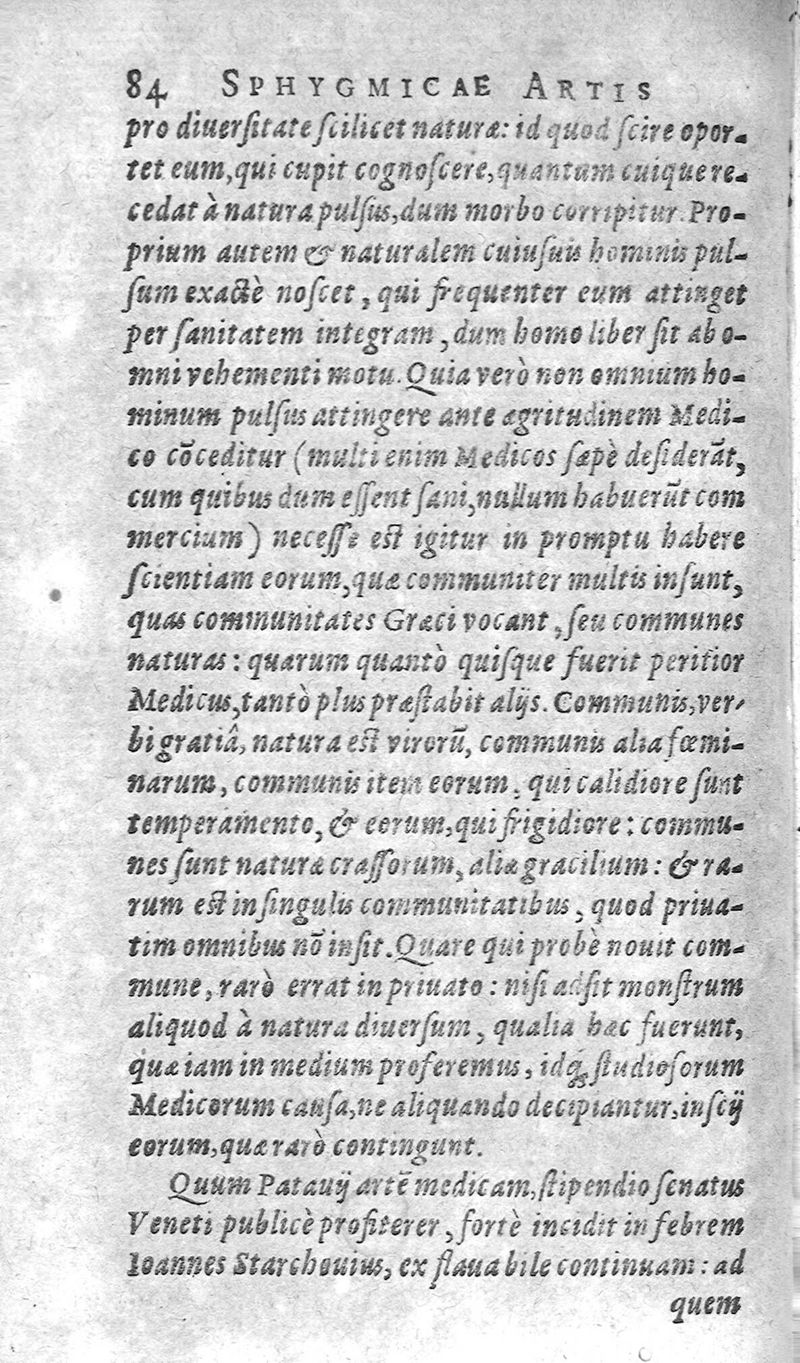 84 SPHYGMICAE ARTIS
pro diuerſitate ſcilicet naturæ: id quod ſcire opor-
tet eum, qui cupit cognoſcere, quantum cuique re-
cedat à natura pulſus, dum morbo corripitur. Pro-
prium autem & naturalem cuiuſuis hominis pul-
ſum exactè noſcet, qui frequenter eum attinget
per ſanitatem integram, dum homo liber ſit ab o-
mni vehementi motu. Quia verò non omnium ho-
minum pulſus attingere ante ægritudinem Medi-
co cōceditur (multi enim Medicos ſæpè deſiderāt,
cum quibus dum eſſent ſani, nullum habuerūt com
mercium) neceſſe est igitur in promptu habere
ſcientiam eorum, quæ communiter multis inſunt,
quas communitates Græci vocant, ſeu communes
naturas: quarum quantò quiſque fuerit peritior
Medicus, tantò plus præſtabit alijs. Communis, ver-
bi gratiâ, natura est virorū, communis alia fœmi-
narum, communis item eorum, qui calidiore ſunt
temperamento, & eorum, qui frigidiore: commu-
nes ſunt naturæ craſſorum, aliæ gracilium: & ra-
rum est in ſingulis communitatibus, quod priua-
tim omnibus nō inſit. Quare qui probè nouit com-
mune, rarò errat in priuato: niſi adſit monſtrum
aliquod à natura diuerſum, qualia hæc fuerunt,
quæ iam in medium proferemus, idq; ſtudioſorum
Medicorum cauſa, ne aliquando decipiantur, inſcij
eorum, quæ rarò contingunt.
Quum Patauij artē medicam, ſtipendio ſenatus
Veneti publicè profiterer, fortè incidit in febrem
Ioannes Starchouius, ex flaua bile continuam: ad
quem